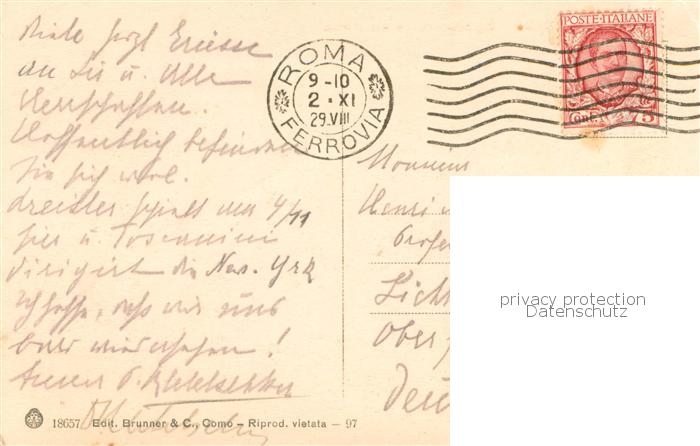 Viele herzl Grüsse
an Sie u. Alle
Herrschaften.
Hoffentlich befinden
Sie sich wol.
Kreisler spielt am 4/11
hier u. Toscanini
dirigirt die New. Yrk
Ich hoffe, dass wir uns
bald wiedersehen!
ROMA
9-10
2 · XI
29.VIII
FERROVIA
POSTE·ITALIANE
Cent. 75
Monsieur
Henri
Profe
Licht
Ober
Deu
privacy protection
Datenschutz
18657 Edit. Brunner & C., Como – Riprod. vietata – 97